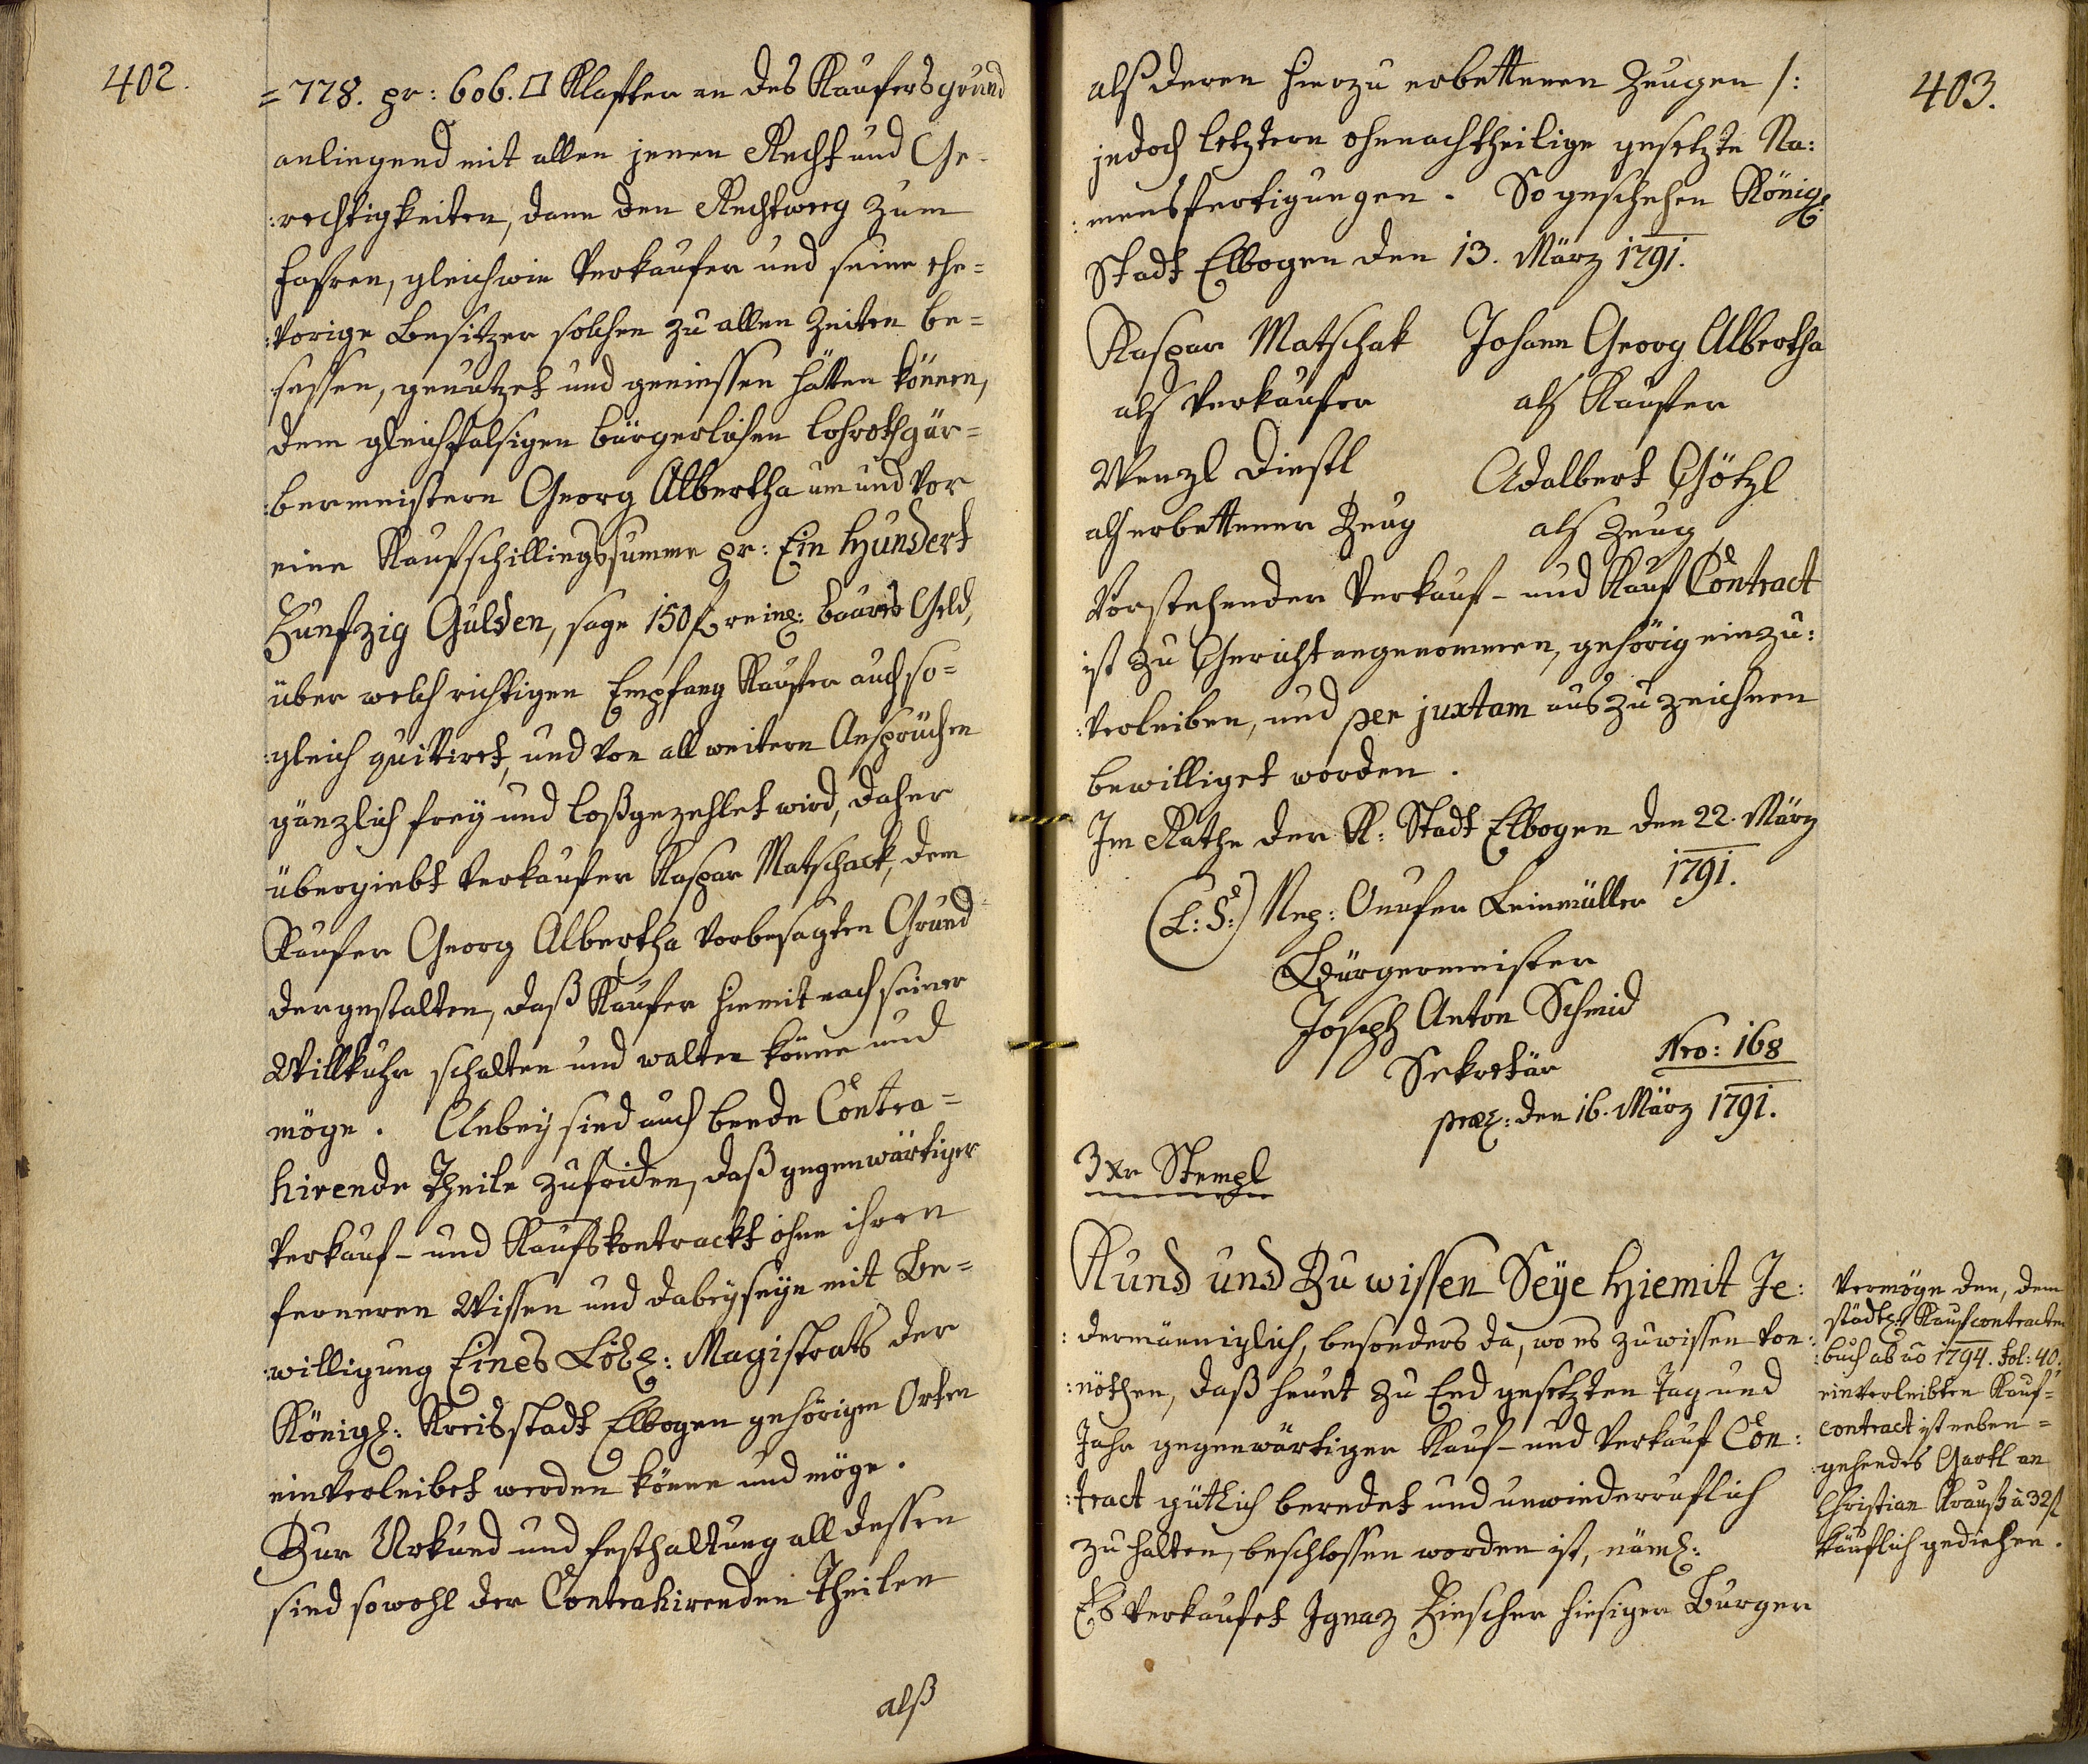 402.
=778. pr: 606. □ Klafter an des Kaufers grund
anliegend mit allen jenen Recht und Ge-
:rechtigkeiten, dann den Rechtweeg zum
fahren, gleichwie Verkaufer und seine ehe=
:vorige Besitzer solchen zu allen Zeiten be=
sessen, genutzet und geniessen hätten können,
dem gleichfalsigen bürgerlichen Lohrothgär=
:bermeistern Georg Albertha um und vor
eine Kaufschillingssumme pr: Ein Hundert
Funfzig Gulden, sage 150 f reinl: baares Geld,
über welch richtigen Empfang Kaufer auch so=
:gleich quittiret, und von all weitern Ansprüchen
gänzlich frey und loßgezehlet wird, daher
übergiebt Verkaufer Kaspar Matschack, dem
Kaufer Georg Albertha vorbesagten Grund
dergestalten, daß Kaufer hiemit nach seiner
Willkuhr schalten und walten könne und
möge. Anbey sind auch beede Contra=
hirende Theile zufriden, daß gegenwärtiger
Verkauf- und Kaufskontrackt ohne ihren
ferneren Wissen und dabeyseyn mit Be=
:willigung Eines Löbl: Magistrats der
Königl: Kreisstadt Elbogen gehörigen Orten
einverleibet werden könne und möge.
Zur Urkund und festhaltung all dessen
sind sowohl der Contrahirenden Theilen
alß
403.
alß deren hierzu erbettenen Zeugen /:
jedoch letztern ohnenachtheilige gesetzte Na:
:mensfertigungen. So geschehen Königl:
Stadt Elbogen den 13. März 1791.
Kaspar Matschak Johann Georg Albertha
als Verkaufer als Kaufer
Wenzl Dinstl Adalbert Götzl
als erbettener Zeug als Zeug
Vorstehender Verkauf- und Kauf Contract
ist zu Gericht angenommen, gehörig einzu:
:verleiben, und per juxtam auszuzeichnen
bewilliget worden.
Im Rathe der K: Stadt Elbogen den 22. März
1791.
(L: S:) Nep: Onufer Leinmüller
Bürgermeister
Joseph Anton Schmid
Sekretär Nro: 168
præs: den 16. März 1791.
3 Xr Stempl
Kund und Zu wissen Seye Hiemit Je:
:dermänniglich, besonders da, wo es zu wissen von:
:nöthen, daß heunt zu End gesetzten Tag und
Jahr gegenwärtiger Kauf- und Verkauf Con:
:tract gütlich beredet und unwiederruflich
zu halten, beschlossen worden ist, näml:
Es verkaufet Ignaz Fischer hiesiger Burger
Vermöge den, dem
städtl: Kaufcontracten
:buch ab ao 1794. fol: 40.
einverleibten Kauf=
contract ist neben=
:gehendes Gartl an
Christian Krauß à 32 f
käuflich gediehen.